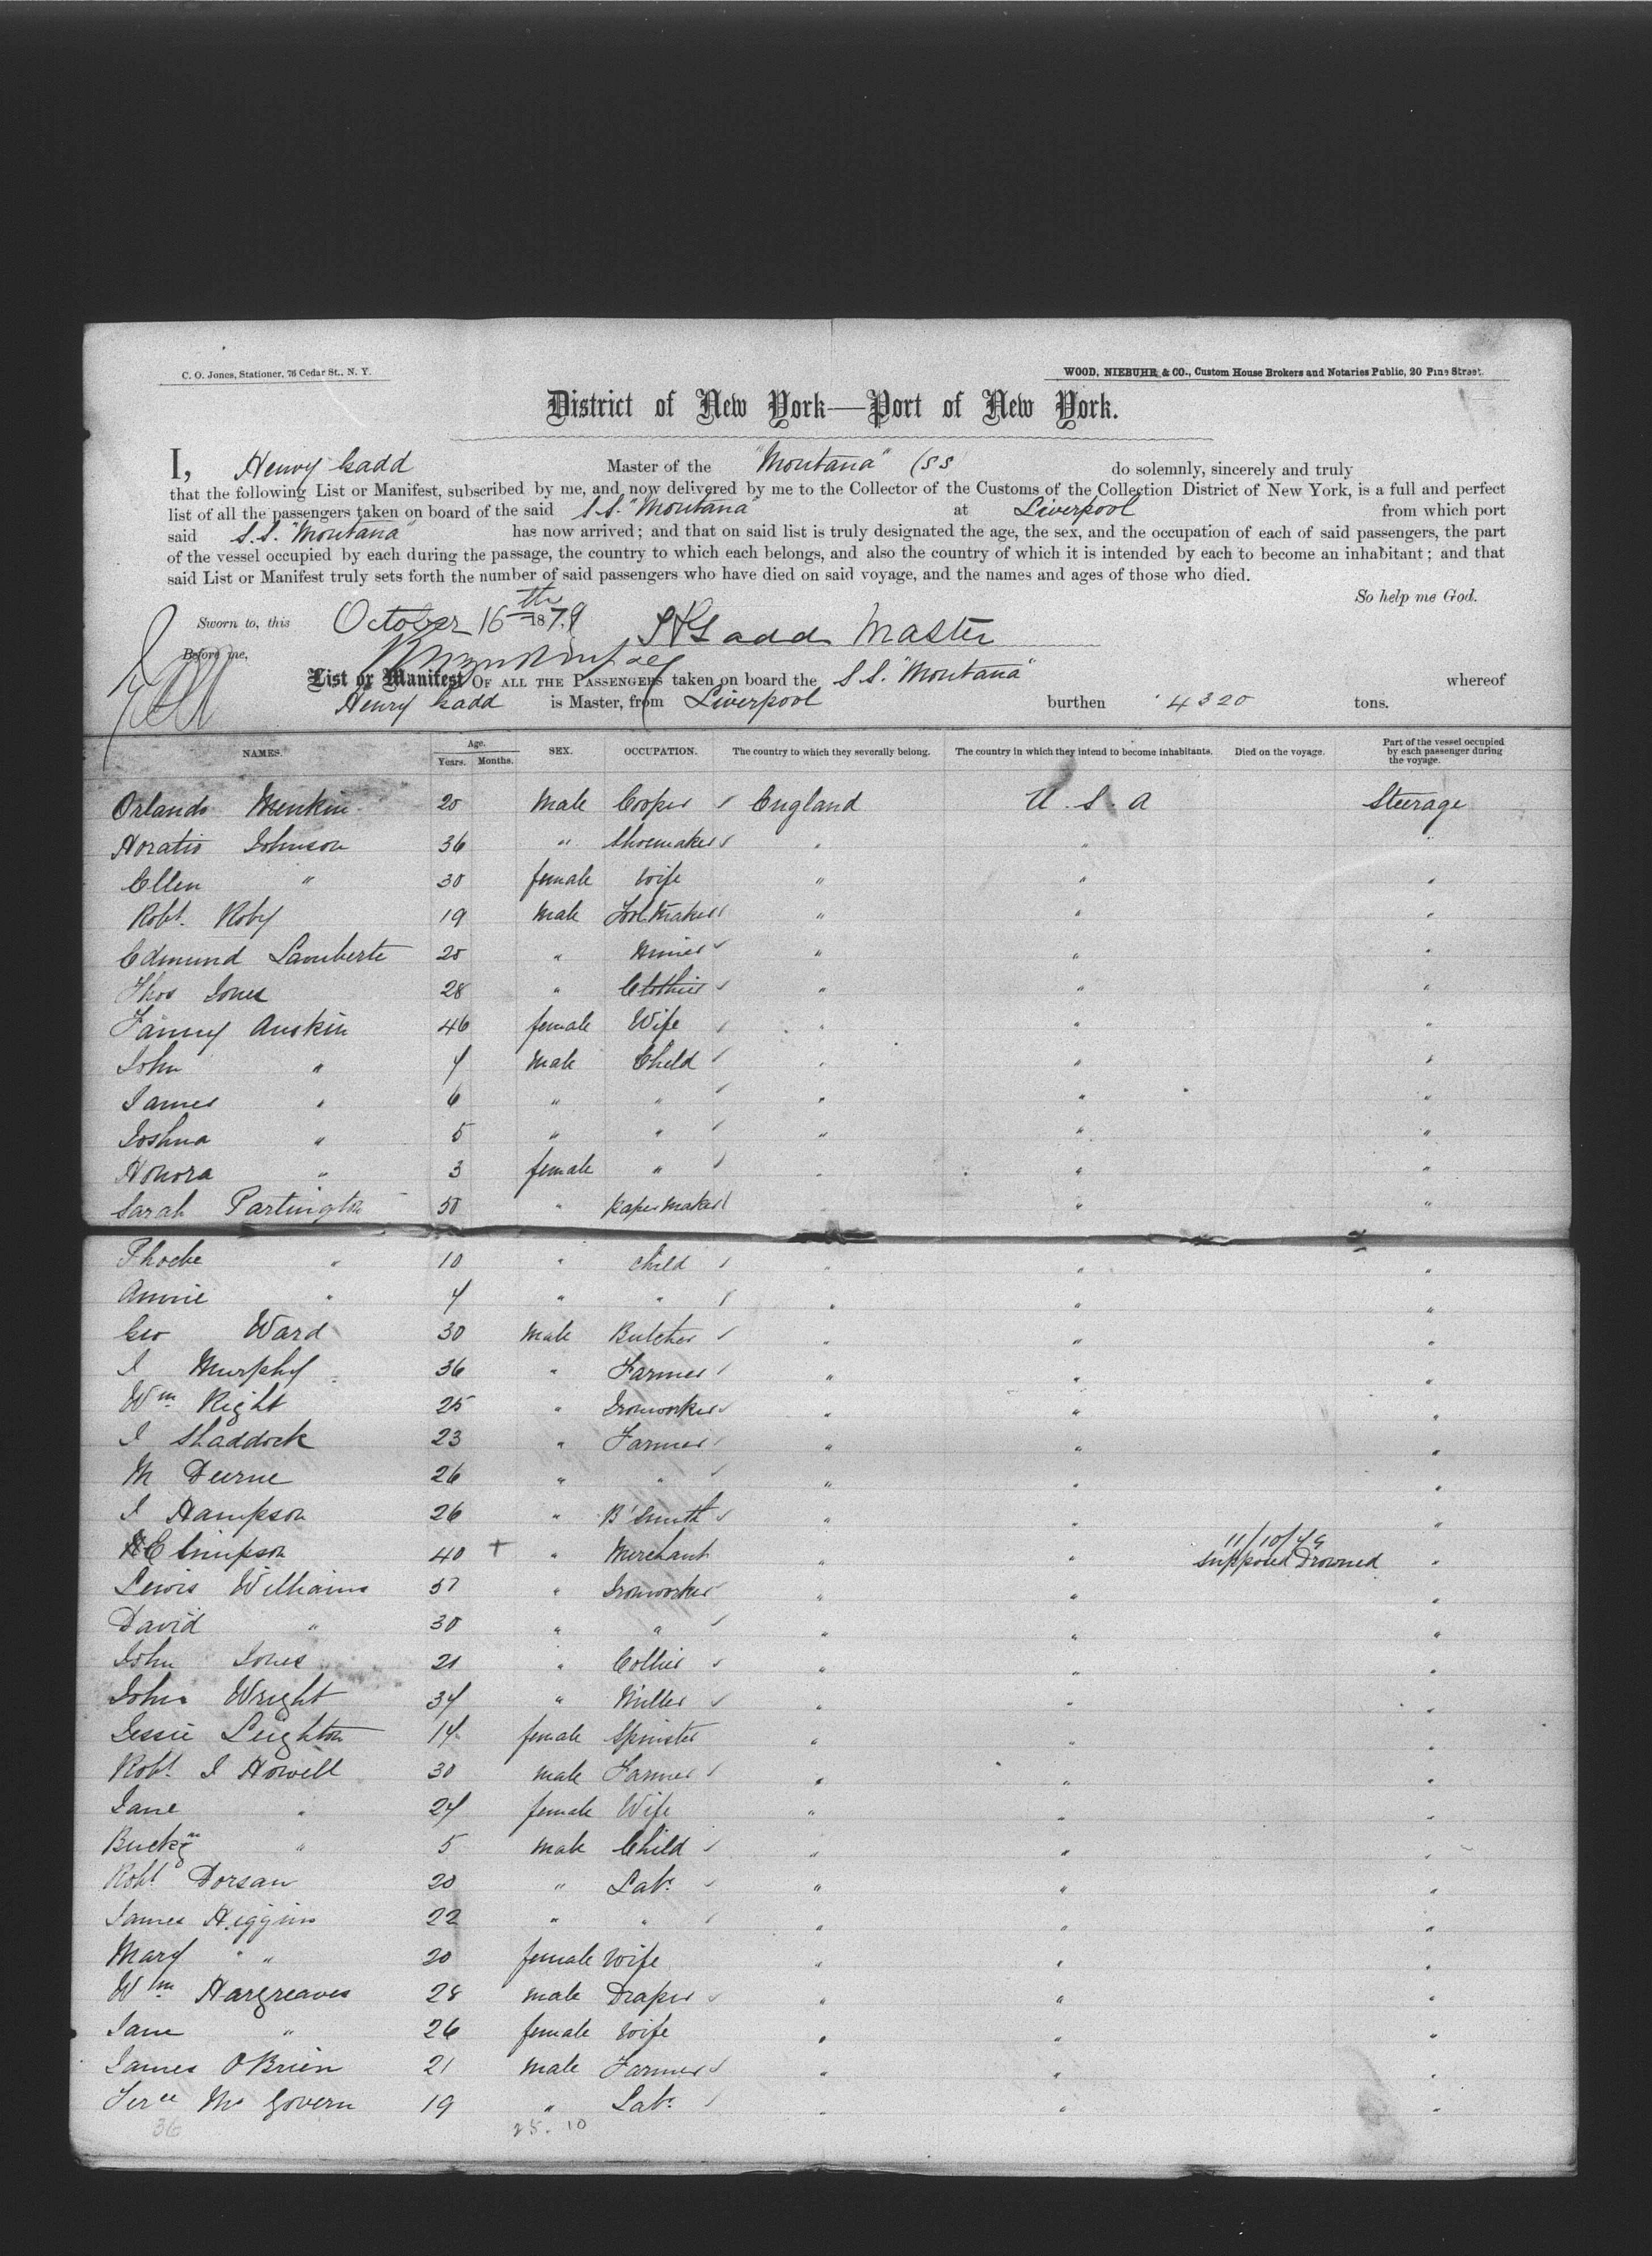 C. O. Jones, Stationer, 76 Cedar St., N. Y.
WOOD, NIEBUHR & CO., Custom House Brokers and Notaries Public, 20 Pine Street.
District of New York—Port of New York.
I, Henry Gadd Master of the "Montana" (SS do solemnly, sincerely and truly
that the following List or Manifest, subscribed by me, and now delivered by me to the Collector of the Customs of the Collection District of New York, is a full and perfect
list of all the passengers taken on board of the said S.S. "Montana" at Liverpool from which port
said S.S. "Montana" has now arrived; and that on said list is truly designated the age, the sex, and the occupation of each of said passengers, the part
of the vessel occupied by each during the passage, the country to which each belongs, and also the country of which it is intended by each to become an inhabitant; and that
said List or Manifest truly sets forth the number of said passengers who have died on said voyage, and the names and ages of those who died.
So help me God.
Sworn to, this October 16th 1879 Gadd Master
Before me,
List or Manifest OF ALL THE PASSENGERS taken on board the S.S. "Montana" whereof
Henry Gadd is Master, from Liverpool burthen 4320 tons.
NAMES. Age. Years. Months. SEX. OCCUPATION. The country to which they severally belong. The country in which they intend to become inhabitants. Died on the voyage. Part of the vessel occupied by each passenger during the voyage.
Orlando Menkin 20 Male Cooper ✓ England U.S.A Steerage
Horatio Johnson 36 " Shoemaker ✓ " " "
Ellen " 30 female Wife " " "
Robt. Roby 19 Male Tool Maker ✓ " " "
Edmund Lamberte 20 " Miner ✓ " " "
Thos Jones 28 " Clothier ✓ " " "
Fanny Auskin 46 female Wife ✓ " " "
John " 7 Male Child ✓ " " "
James " 6 " " ✓ " " "
Joshua " 5 " " ✓ " " "
Honora " 3 female " ✓ " " "
Sarah Partington 50 " Paper Maker ✓ " "
Phoebe " 10 " Child ✓ " " "
Annie " 4 " " ✓ " " "
Geo Ward 30 Male Butcher ✓ " " "
J Murphy 36 " Farmer ✓ " " "
Wm Right 25 " Ironworker ✓ " " "
J Shaddock 23 " Farmer ✓ " " "
M Deerne 26 " " ✓ " " "
J Hampson 26 " B'Smith ✓ " " "
E Simpson 40 + " Merchant " " 11/10/79 Supposed Drowned "
Lewis Williams 57 " Ironworker " " "
David " 30 " " ✓ " " "
John Jones 21 " Collier ✓ " " "
John Wright 34 " Miller ✓ " " "
Jessie Leighton 14 female Spinster " " "
Robt. J Howell 30 male Farmer ✓ " " "
Jane " 24 female Wife " " "
" 5 male Child ✓ " " "
Robt. Dorsan 20 " Labr ✓ " " "
James Higgins 22 " " ✓ " " "
Mary " " 20 female Wife " " "
Wm Hargreaves 28 male Draper ✓ " " "
Jane " 26 female Wife " " "
James O'Brien 21 male Farmer ✓ " " "
Terce McGovern 19 " Labr ✓ " " "
36 25. 10